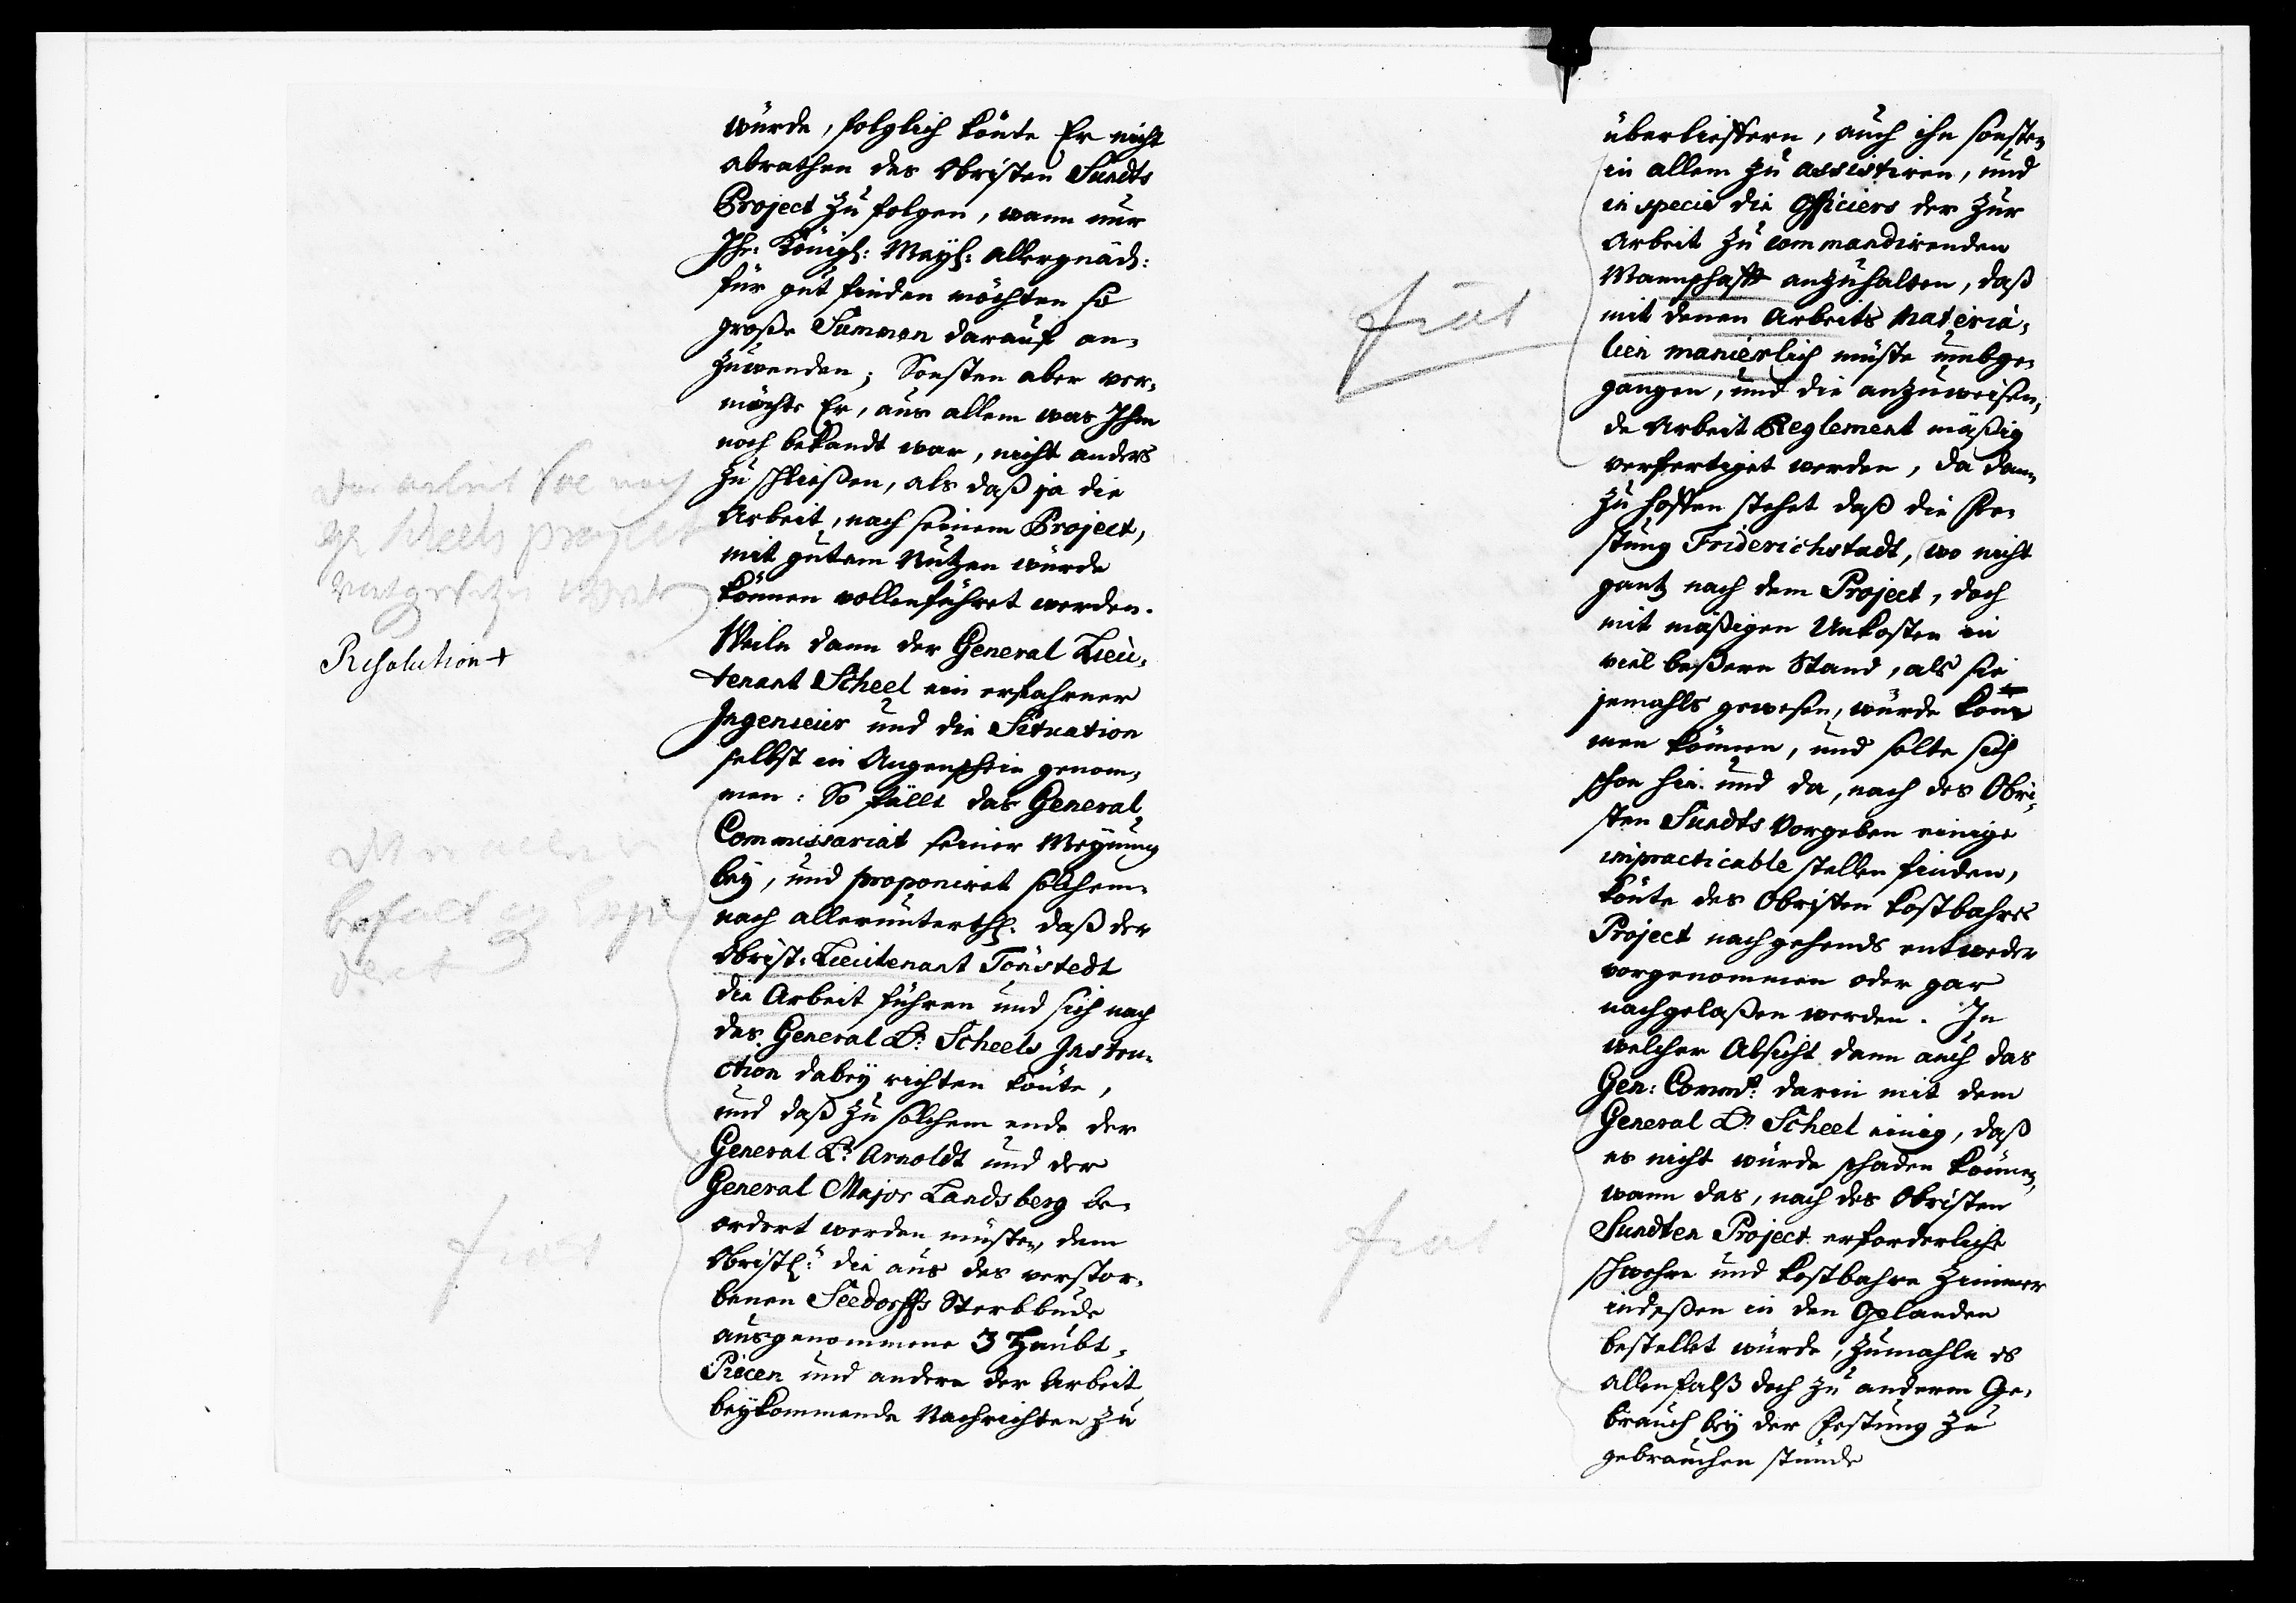 würde, folglich könte Er nicht
abrathen des Obristen Sundts
Project zu folgen, wann nur
Ihr: Königl: Mayl: allergnäd:
für gut finden möchten so
große Summen darauf an-
zuwenden; Sonsten aber ver-
möchte Er, aus allem was Ihm
noch bekandt war, nicht anders
zu schließen, als daß ja die
Arbeit, nach seinem Project,
mit gutem Nutzen würde
können vollenführet werden.
Weiln dann der General Lieu-
tenant Scheel ein erfahrner
Ingenieur und die Situation
selbst in Augenschein genom-
men: So fällt das General
Commissariat seiner Meynung
bey, und proponiret solchem-
nach allerunterthl: daß der
Obrist-Lieutenant Tönstedt
die Arbeit führen und sich nach
des General Lt: Scheels Instru-
ction dabey richten könte,
und daß zu solchem ende der
General Lt: Arnoldt und der
General Major Landsberg be-
ordert werden müsten, dem
Obristl: die aus des verstor-
benen Seedorffs Sterbbude
ausgenommene 3 Haubt-
Piècen und andere der Arbeit
beykommende Nachrichten zu
Resolution +
fiat
überlieffern, auch ihn sonsten
in allem zu assistiren, und
in specie die Officiers der zur
Arbeit zu commandirenden
Mannschafft anzuhalten, daß
mit denen Arbeits Materia-
lien manierlich müste umbge-
gangen, und die anzuweisen-
de Arbeit Reglement mäßig
verfertiget werden, da dann
zu hoffen stehet daß die Fe-
stung Friderichstadt, wo nicht
gantz nach dem Project, doch
mit mäßigen Unkosten in
viel beßern Stand, als sie
jemahls gewesen, würde kom
men können, und solte sich
schon hie und da, nach des Obri-
sten Sundts Vorgeben einige
impracticable stellen finden,
könte des Obristen kostbahres
Project nachgehends entweder
vorgenommen oder gar
nachgelaßen werden. In
welcher Absicht dann auch das
Gen: Commt: darin mit dem
General Lt: Scheel einig, daß
es nicht würde schaden können,
wann das, nach des Obristen
Sundten Project erforderliche
schwehre und kostbahre Zimmer
indeßen in den Gelanden
bestellet würde, zumahln es
allenfalß doch zu anderm Ge-
brauch bey der Festung zu
gebrauchen stünde
fiat
fiat